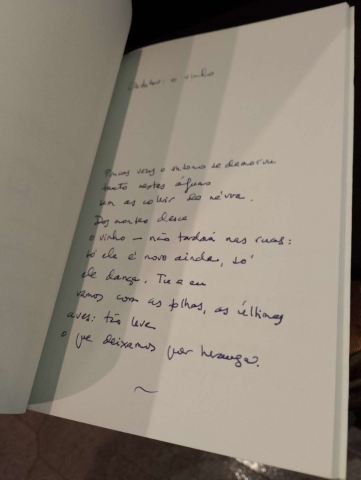 Outubro: o vinho
Poucas vezes o outono se demorou
tanto nestas águas
sem as cobrir de névoa.
Dos montes desce
o vinho — não tardará nas ruas:
só ele é novo ainda, só
ele dança. Tu e eu
vamos com as folhas, as últimas
aves: tão leve
o que deixamos por herança.